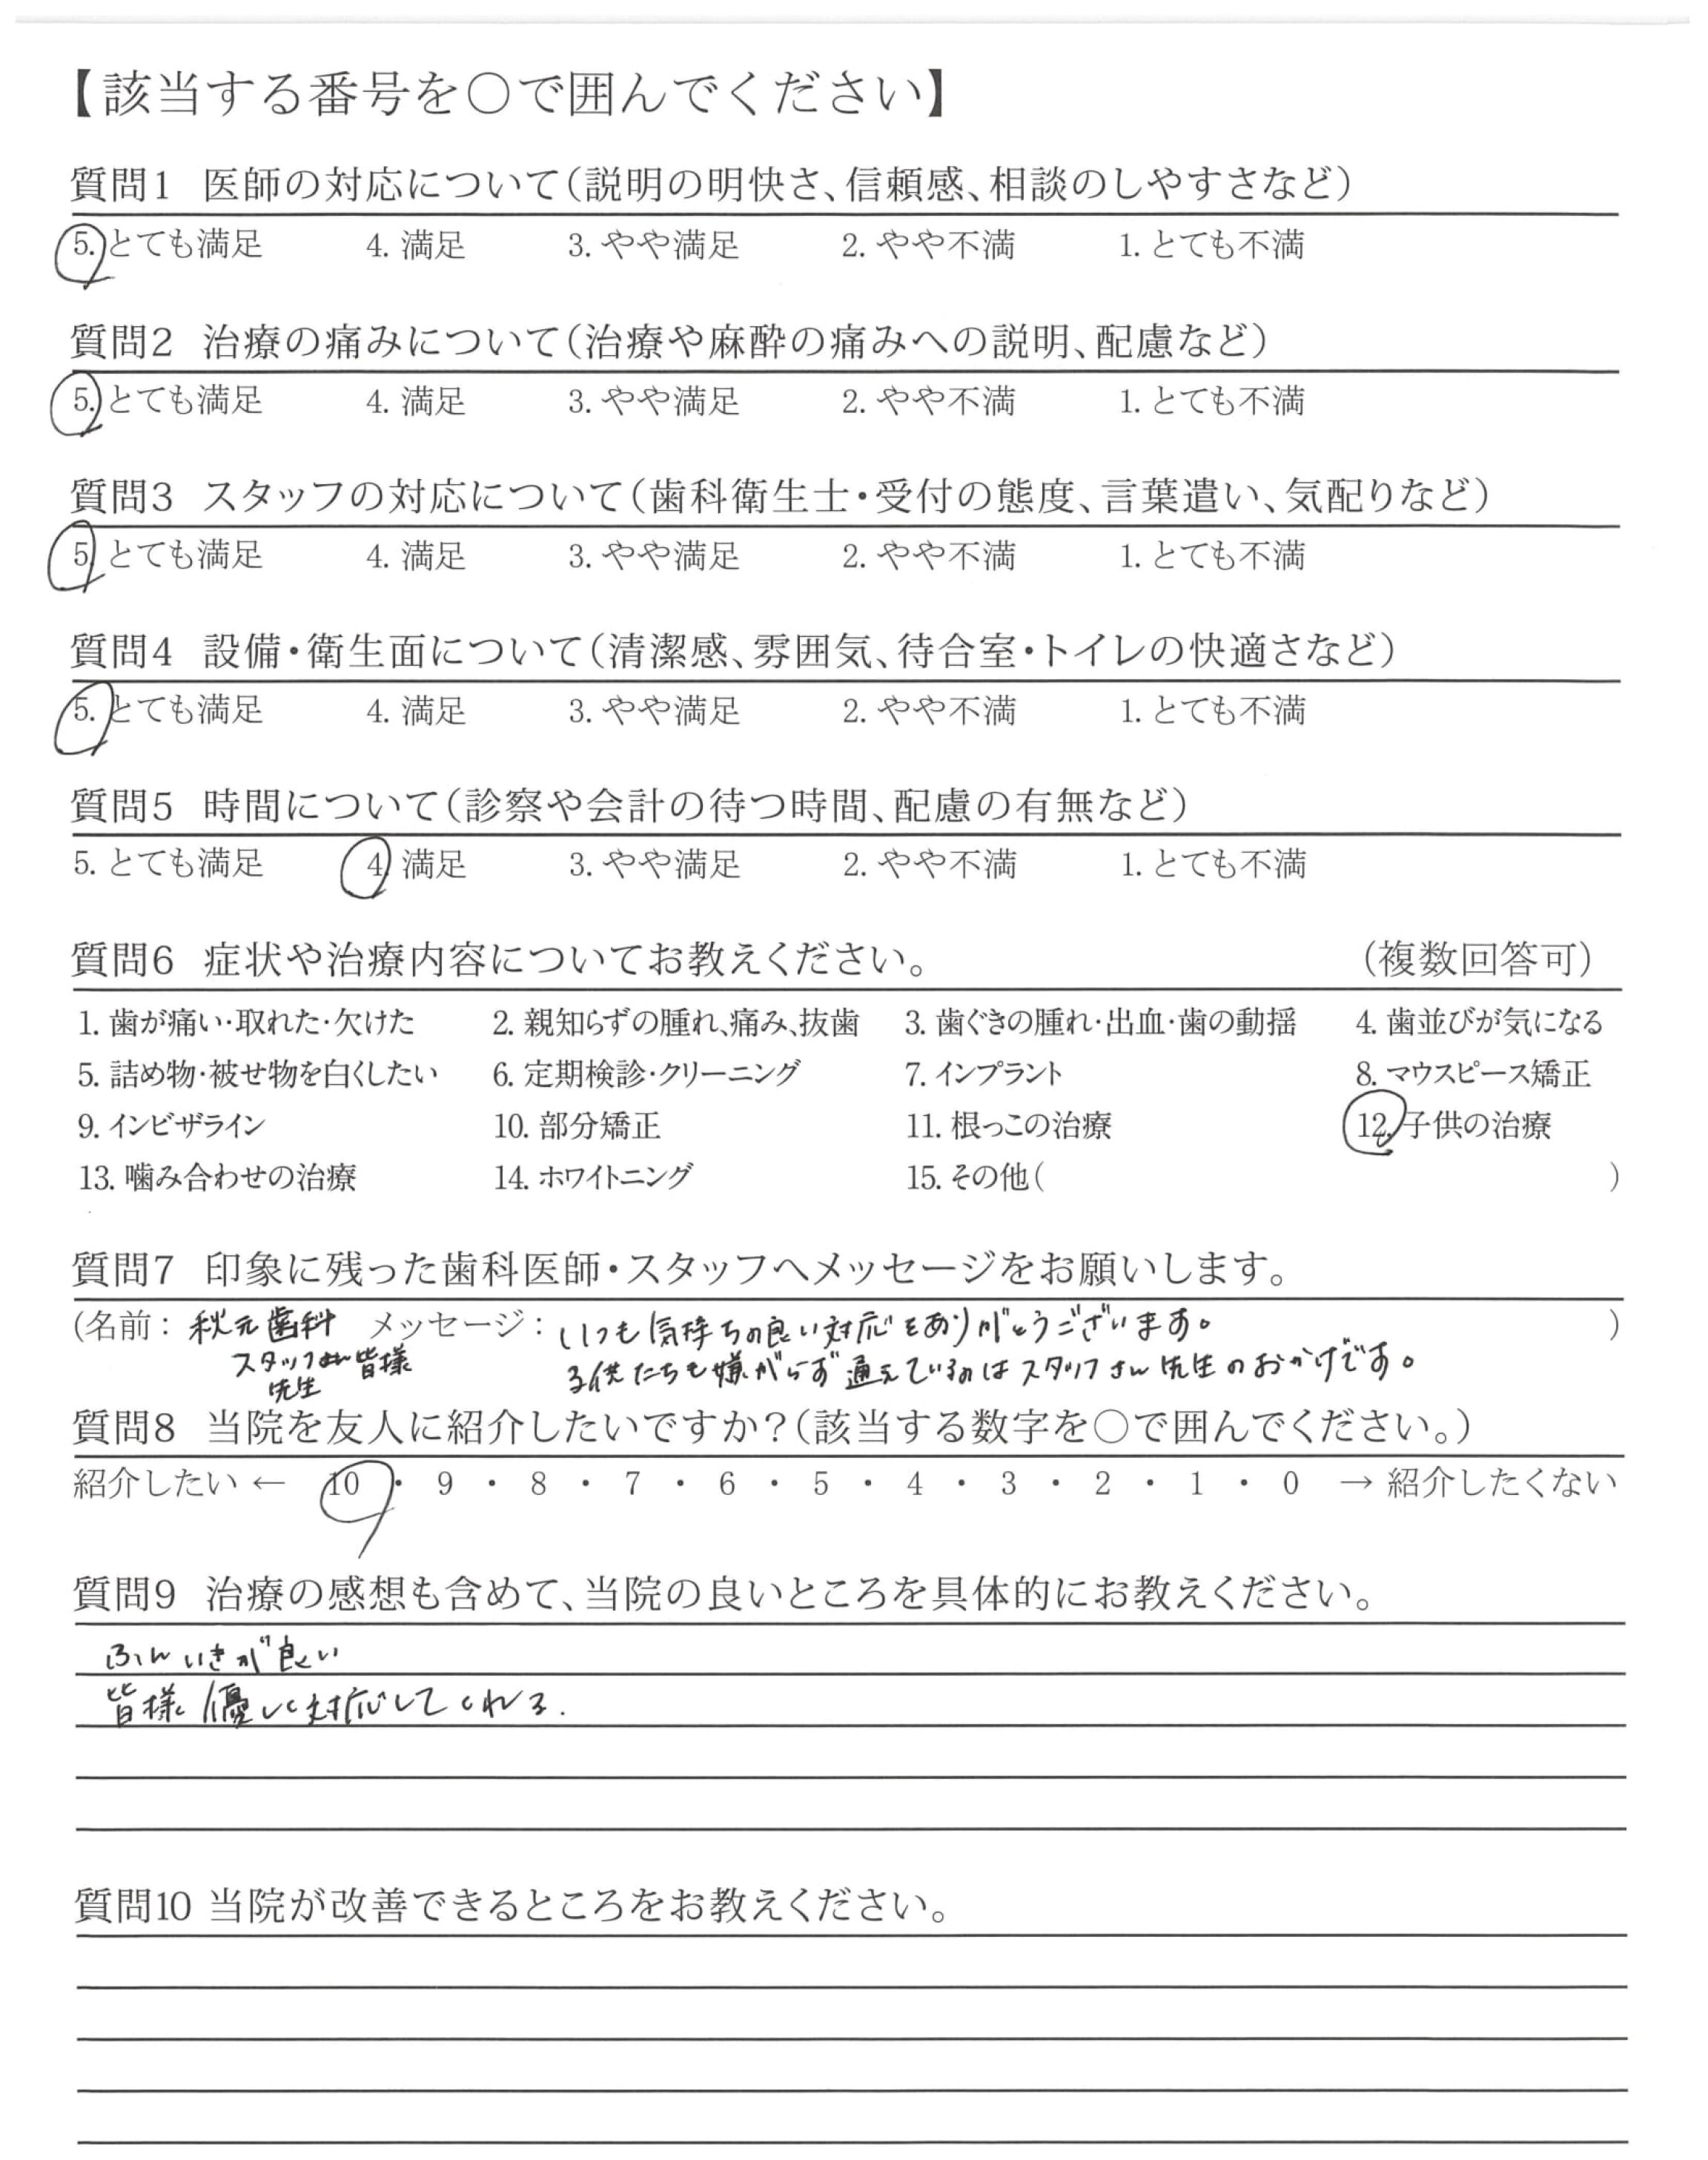 【該当する番号を○で囲んでください】
質問1 医師の対応について(説明の明快さ、信頼感、相談のしやすさなど)
5. とても満足 4. 満足 3. やや満足 2. やや不満 1. とても不満
質問2 治療の痛みについて(治療や麻酔の痛みへの説明、配慮など)
5. とても満足 4. 満足 3. やや満足 2. やや不満 1. とても不満
質問3 スタッフの対応について(歯科衛生士・受付の態度、言葉遣い、気配りなど)
5 とても満足 4. 満足 3. やや満足 2. やや不満 1. とても不満
質問4 設備・衛生面について(清潔感、雰囲気、待合室・トイレの快適さなど)
5. とても満足 4. 満足 3. やや満足 2. やや不満 1. とても不満
質問5 時間について(診察や会計の待つ時間、配慮の有無など)
5. とても満足 4. 満足 3. やや満足 2. やや不満 1. とても不満
質問6 症状や治療内容についてお教えください。 (複数回答可)
1. 歯が痛い・取れた・欠けた 2. 親知らずの腫れ、痛み、抜歯 3. 歯ぐきの腫れ・出血・歯の動揺 4. 歯並びが気になる
5. 詰め物・被せ物を白くしたい 6. 定期検診・クリーニング 7. インプラント 8. マウスピース矯正
9. インビザライン 10. 部分矯正 11. 根っこの治療 12. 子供の治療
13. 噛み合わせの治療 14. ホワイトニング 15. その他( )
質問7 印象に残った歯科医師・スタッフへメッセージをお願いします。
(名前: 秋元歯科 メッセージ: いつも気持ちの良い対応をありがとうございます。 )
スタッフさん皆様 子供たちも嫌がらず通えているのはスタッフさん先生のおかげです。
先生
質問8 当院を友人に紹介したいですか?(該当する数字を○で囲んでください。)
紹介したい ← 10 ・ 9 ・ 8 ・ 7 ・ 6 ・ 5 ・ 4 ・ 3 ・ 2 ・ 1 ・ 0 → 紹介したくない
質問9 治療の感想も含めて、当院の良いところを具体的にお教えください。
ふんいきが良い
皆様優しく対応してくれる.
質問10 当院が改善できるところをお教えください。